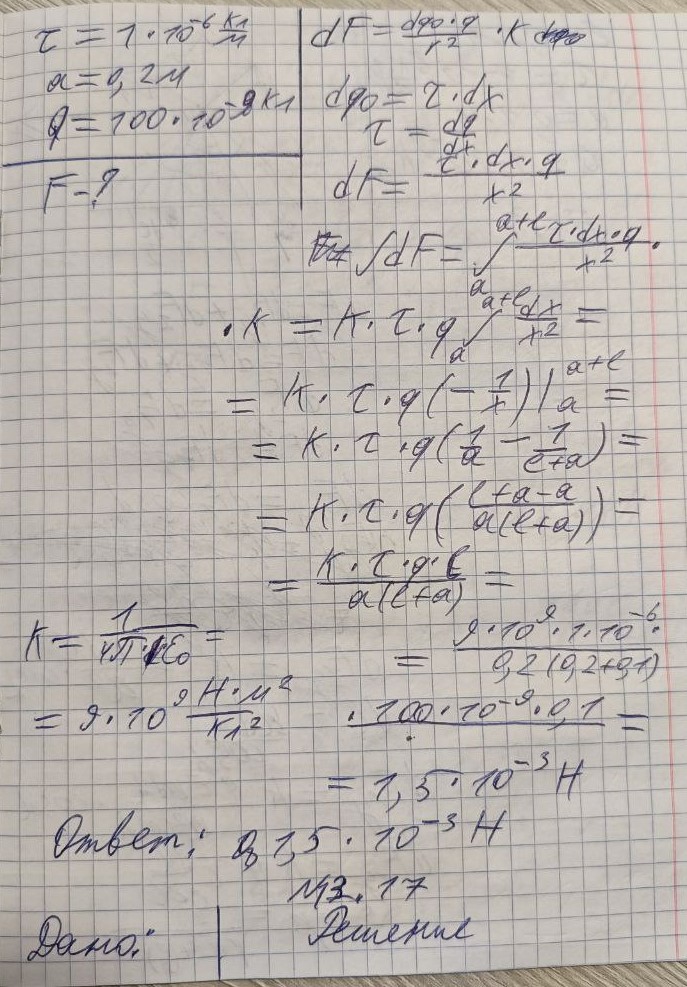 τ = 1·10⁻⁶ Кл/м
a = 0,2 м
q = 100·10⁻⁹ Кл
F - ?
dF = dq₀·q/r² ·K
dq₀ = τ·dx
τ = dq/dx
dF = τ·dx·q/x²
∫dF = ∫ₐᵃ⁺ˡ τ·dx·q/x² ·
·K = K·τ·q ∫ₐᵃ⁺ˡ dx/x² =
= K·τ·q(-1/x)|ₐᵃ⁺ˡ =
= K·τ·q(1/a - 1/(l+a)) =
= K·τ·q((l+a-a)/(a(l+a))) =
= K·τ·q·l/(a(l+a)) =
K = 1/(4π·ε₀) =
= 9·10⁹ Н·м²/Кл²
= 9·10⁹·1·10⁻⁶·/(0,2(0,2+0,1))
·100·10⁻⁹·0,1 =
= 1,5·10⁻³ Н
Ответ: 1,5·10⁻³ Н
№3.17
Дано:
Решение